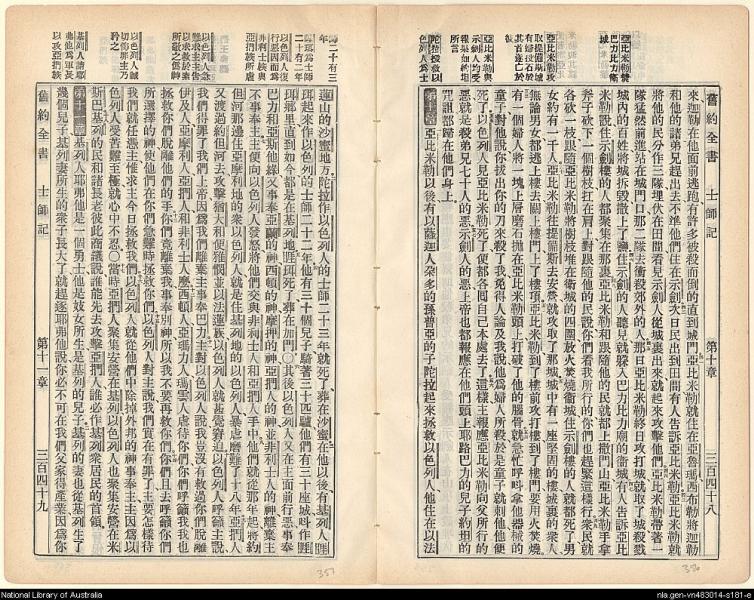 舊約全書 士師記 第十章 三百四十八
來迦勒在他面前逃跑有許多被殺而倒的直到城門亞比米勒就住在亞魯瑪西布勒將迦勒
和他的諸弟兄趕出去不容他們住在示劍次日民出到田間有人告訴亞比米勒亞比米勒就
將他的民分作三隊埋伏在田間看見示劍人從城裏出來就起來攻擊他們亞比米勒帶著一
隊猛然前進站在城門口那二隊去衝殺郊外的人那日亞比米勒終日攻打城就取了城殺戮
城內的百姓將城拆毀撒上了鹽住示劍樓的人聽見就躲入巴力比力廟的衞城有人告訴亞比
米勒說住示劍樓的人都聚集在那裏亞比米勒和跟隨他的民就都上撒們山亞比米勒手拿
斧子砍下一個樹枝扛在肩上對跟隨他的民說你們看我所行的你們也趕緊這樣行衆民就
各砍一枝跟隨亞比米勒將樹枝堆在衞城的四圍放火焚燒衞城住示劍樓的人就都死了男
女約有一千人亞比米勒往提備斯去安營就攻取了那城城中有一座堅固的樓城裏的衆人
無論男女都逃上樓去關上樓門上了樓頂亞比米勒到了樓前攻打樓到了樓門要用火焚燒
有一個婦人將一塊上層磨石拋在亞比米勒頭上打破了他的腦骨就急忙呼呌拿他器械的
童子對他說你拔出你的刀來殺了我免得人論及我說他爲婦人所殺於是童子就刺他他便
死了以色列人見亞比米勒死了便都各囘自己本處去了這樣主報應亞比米勒向父所行的
惡就是殺弟兄七十人的惡示劍人的惡上帝也都報應在他們頭上耶路巴力的兒子約坦的
咒詛都歸在他們身上
第十章 亞比米勒以後有以薩迦人朶多的孫普亞的子陀拉起來拯救以色列人他住在以法
亞比米勒焚巴力比力衞城
亞比米勒攻取提備斯城有婦投石於其首遂亡於彼
亞比米勒與示劍人受報果如約坦所言
陀拉接續以色列人爲士
舊約全書 士師記 第十一章 三百四十九
蓮山的沙蜜地方陀拉作以色列人的士師二十三年就死了葬在沙蜜在他以後有基列人睚
珥起來作以色列的士師二十二年他有三十個兒子騎著三十匹驢他們有三十座城呌作睚
珥鄉里直到如今都是在基列地睚珥死了葬在加門〇其後以色列人又在主面前行惡事奉
巴力和亞斯他錄又事奉亞蘭的神西頓的神摩押的神亞捫人的神並非利士人的神離棄主
不事奉主主便向以色列人發怒將他們交與非利士人和亞捫人手中他們就從那年起將約
但河那邊住亞摩利地的衆以色列人就是住基列地的以色列人暴虐磨難了十八年亞捫人
又渡過約但河去攻擊猶大和便雅憫並以法蓮族以色列人就甚覺窘迫以色列人呼籲主說
我們得罪了我們上帝因爲我們離棄主事奉巴力主對以色列人說我豈沒有救過你們脫離
伊及人亞摩利人亞捫人和非利士人麽西頓人亞瑪力人瑪雲人虐待你們你們呼籲我我也
拯救你們脫離他們的手你們竟離棄我事奉別神所以我不要再救你們你們且去呼籲你們
所選擇的神使他們在你們急難時拯救你們以色列人對主說我們實在有罪了主要怎樣待
我們就任憑主惟求主今日拯救我們以色列人就從他們中除掉外邦的神事奉主主因爲以
色列人受苦難至極就心中不忍〇當時亞捫人聚集安營在基列以色列人也聚集安營在米
斯巴基列的民和諸長老彼此商議說誰能先去攻擊亞捫人誰必作基列衆居民的首領
第十一章 基列人耶弗他是一個勇士他是妓女所生是基列的兒子基列的妻也從基列生了
幾個兒子基列妻所生的衆子長大了就趕逐耶弗他說你必不可在我們父家得產業因爲你
師二十有三年
睚珥爲士師二十有二年
以色列人復行惡因而爲非利士族與亞捫族所虐
以色列人急難求主主命求救於素所敬之僞神
以色列人誠切仰耶主乃矜之
基列人請耶弗他爲軍長以攻亞捫族
357
356
National Library of Australia
nla.gen-vn483014-s181-e